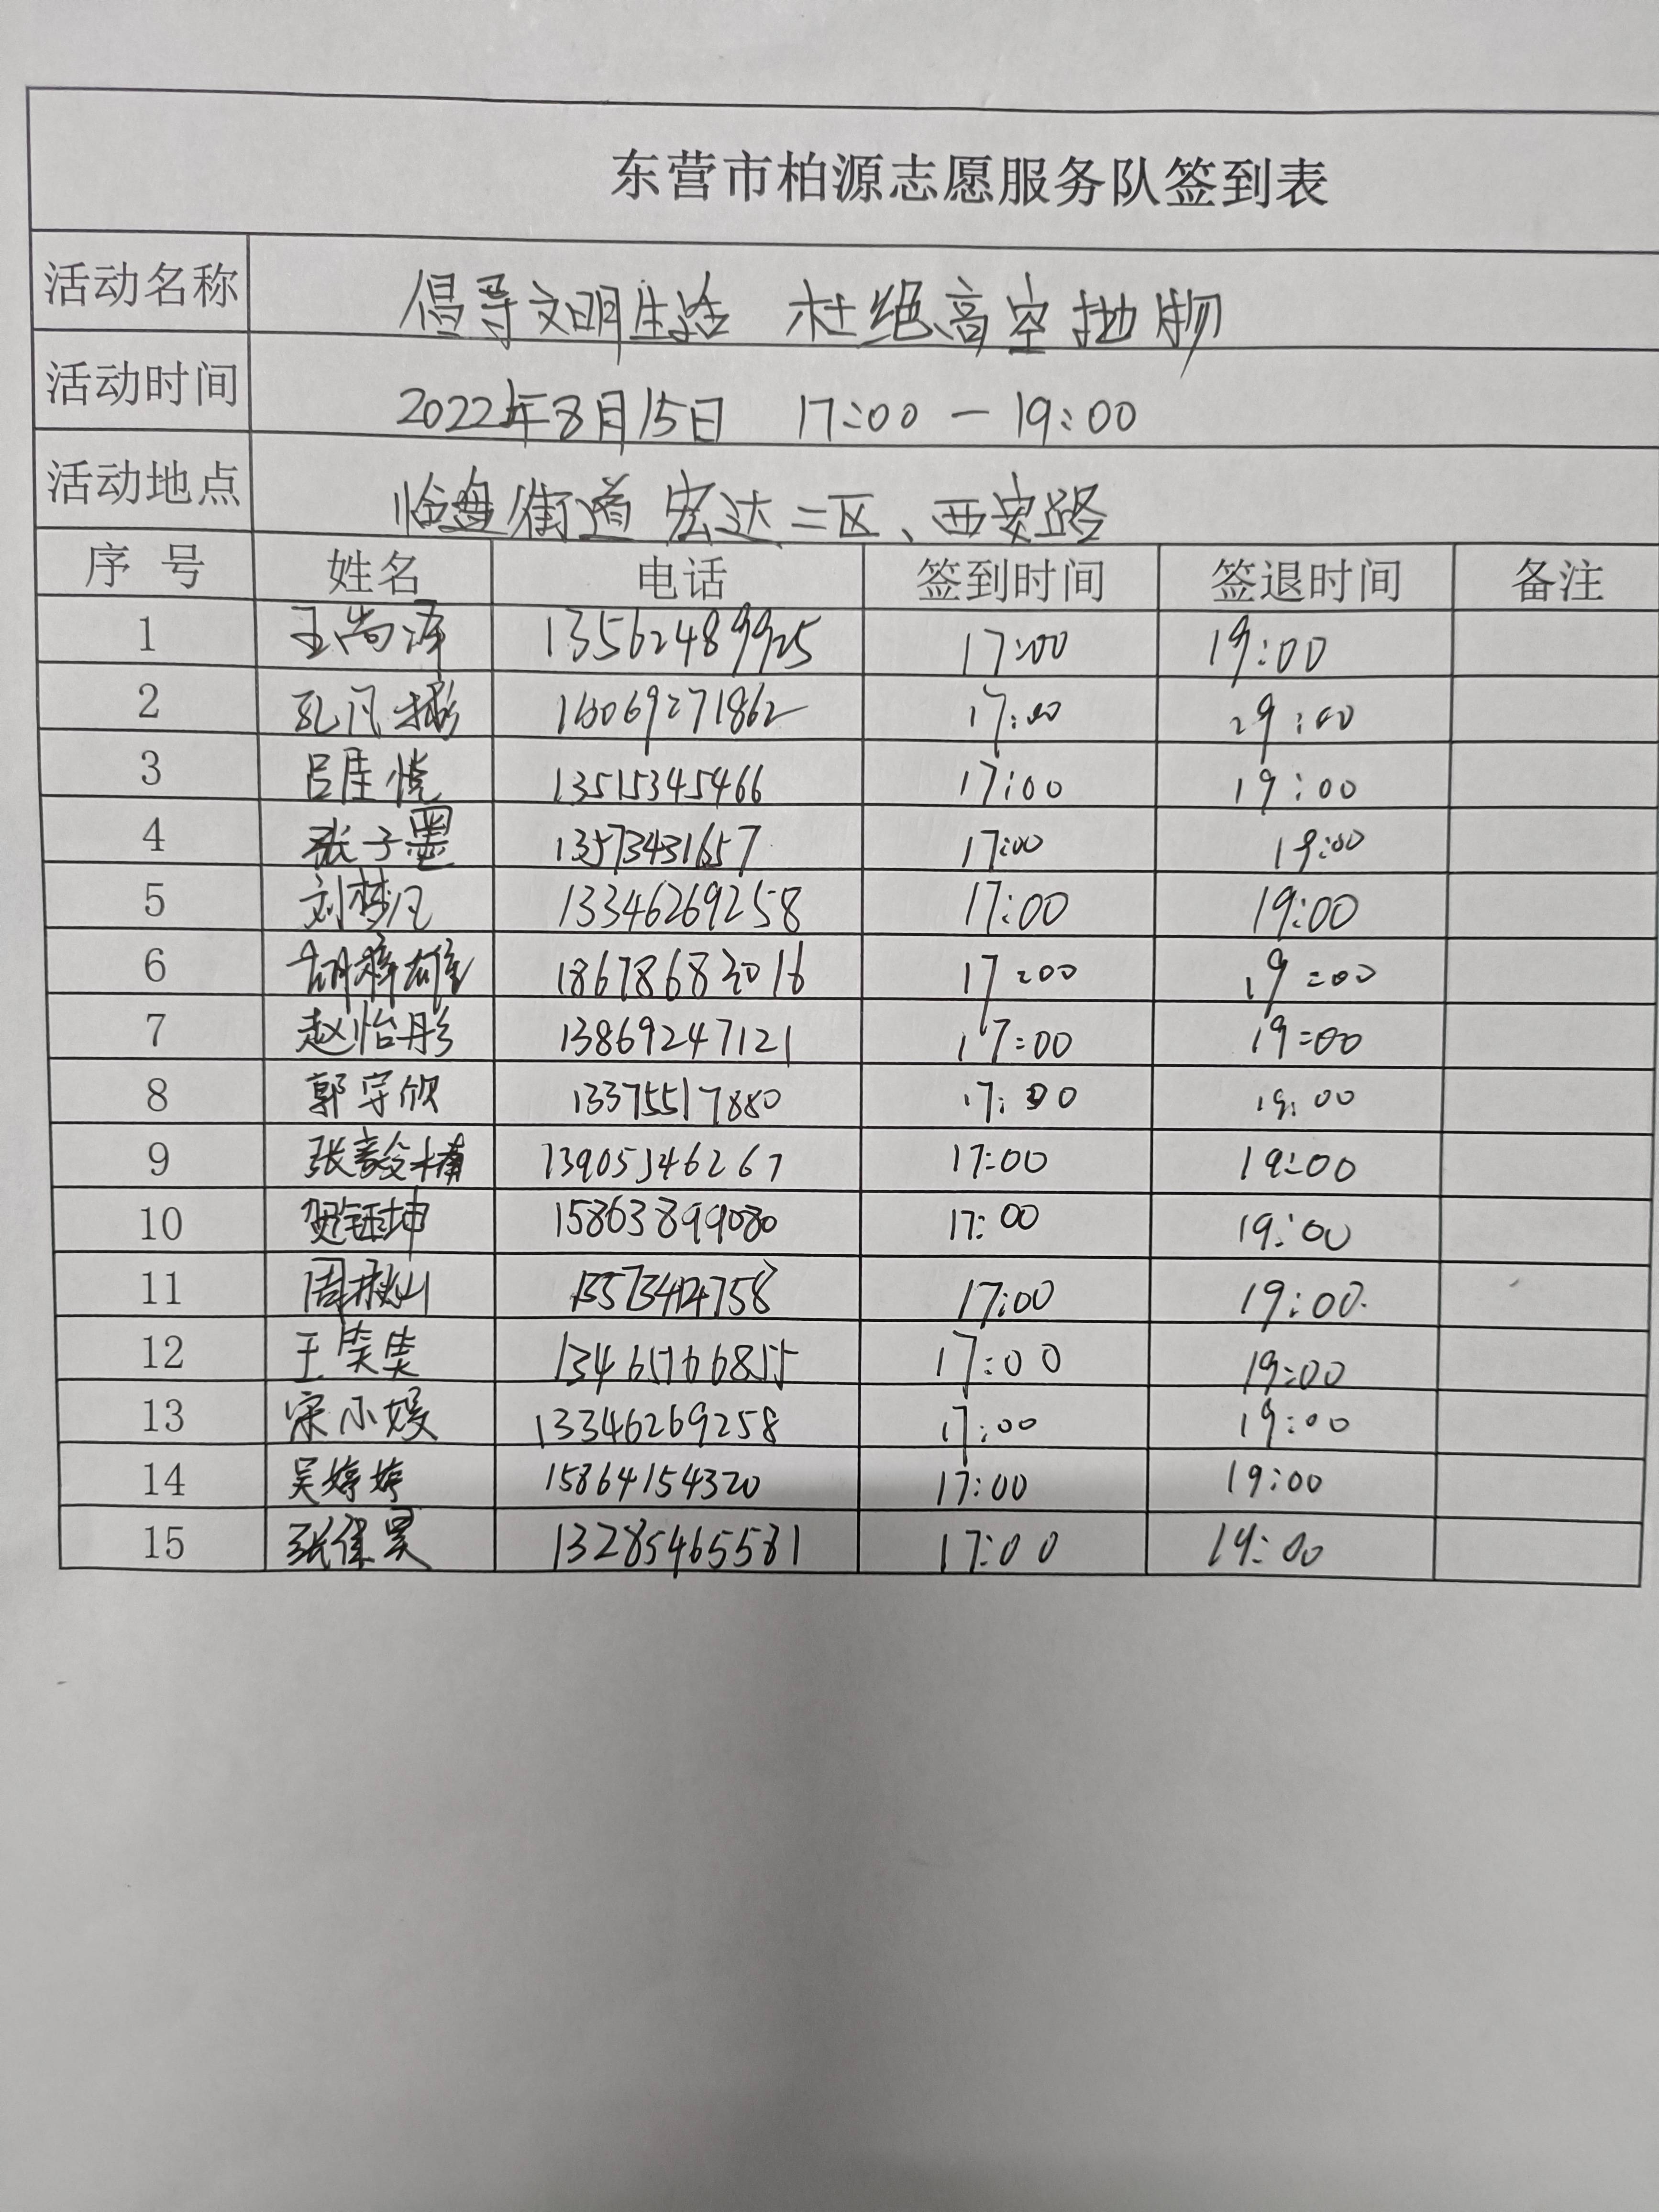 东营市柏源志愿服务队签到表
活动名称 倡导文明生活 杜绝高空抛物
活动时间 2022年8月15日 17:00－19:00
活动地点 临盘街道宏达二区、西安路
序号 姓名 电话 签到时间 签退时间 备注
1 王尚泽 13562489925 17:00 19:00
2 孔凡 16069271862 17:00 19:00
3 吕佳悦 13515345466 17:00 19:00
4 张子墨 13573431657 17:00 19:00
5 刘梦凡 13346269258 17:00 19:00
6 胡雄 18678683016 17:00 19:00
7 赵怡彤 13869247121 17:00 19:00
8 郭宇欣 13375517880 17:00 19:00
9 张 13905346267 17:00 19:00
10 贺钰坤 15863899080 17:00 19:00
11 周 17:00 19:00
12 王昊昊 13465766855 17:00 19:00
13 宋小媛 13346269258 17:00 19:00
14 吴婷婷 15864154320 17:00 19:00
15 张保昊 13285465581 17:00 19:00